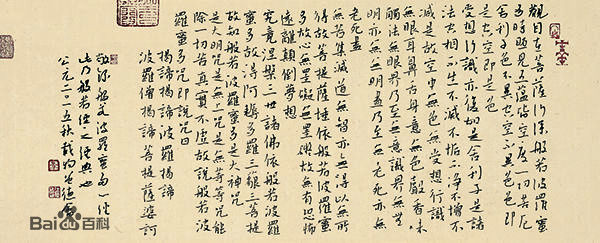 觀自在菩薩行深般若波羅蜜
多時照見五蘊皆空度一切苦厄
舍利子色不異空空不異色色即
是空空即是色
受想行識亦復如是舍利子是諸
法空相不生不滅不垢不淨不增不
減是故空中無色無受想行識
無眼耳鼻舌身意無色聲香味
觸法無眼界乃至無意識界無無
明亦無無明盡乃至無老死亦無
老死盡
無苦集滅道無智亦無得以無所
得故菩提薩埵依般若波羅蜜
多故心無罣礙無罣礙故無有恐怖
遠離顛倒夢想
究竟涅槃三世諸佛依般若波羅
蜜多故得阿耨多羅三藐三菩提
故知般若波羅蜜多是大神咒
是大明咒是無上咒是無等等咒能
除一切苦真實不虛故說般若波
羅蜜多咒即說咒曰
揭諦揭諦波羅揭諦
波羅僧揭諦菩提薩婆訶
般若波羅蜜多
此乃般若經之經典也
公元二〇一五秋
Bai百科